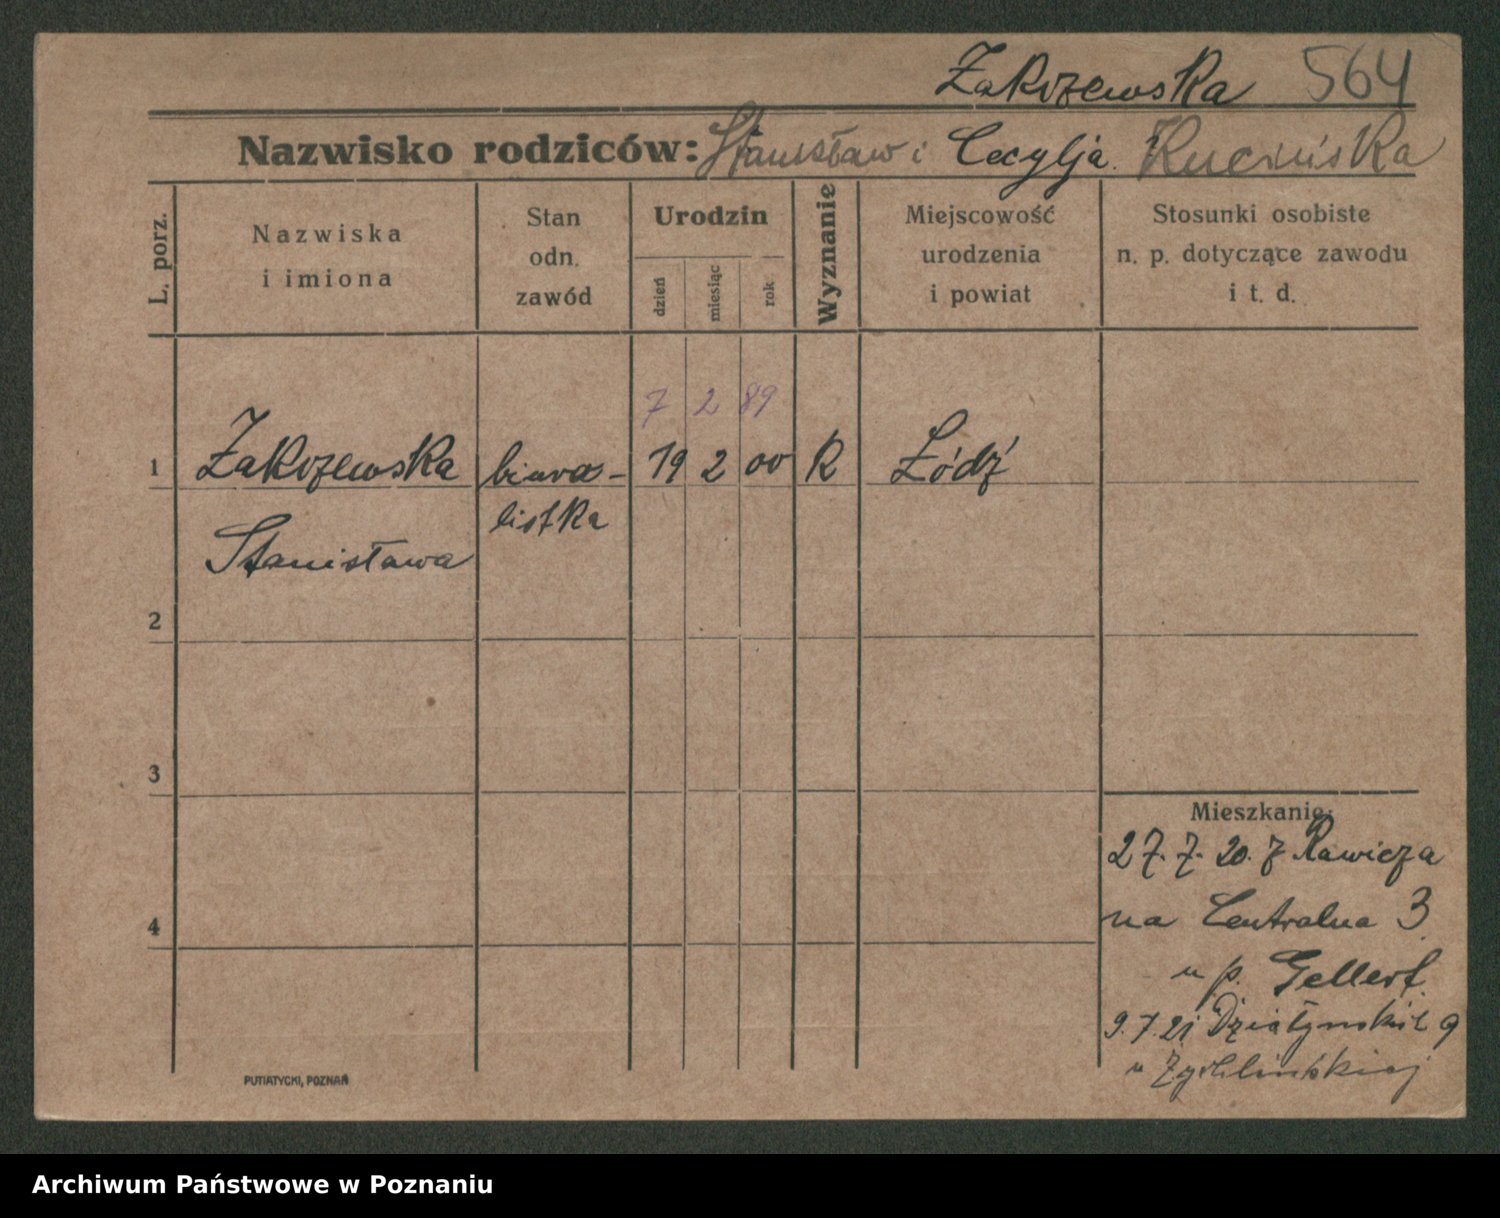 Zakrzewska 564
Nazwisko rodziców: Stanisław i Cecylja Kucińska
L. porz.
Nazwiska
i imiona
Stan
odn.
zawód
Urodzin
dzień
miesiąc
rok
Wyznanie
Miejscowość
urodzenia
i powiat
Stosunki osobiste
n. p. dotyczące zawodu
i t. d.
7 2 89
1 Zakrzewska biura- 19 2 00 R Łódź
listka
Stanisława
2
3
4
Mieszkanie:
27. 7. 20. z Rawicza
na Centralna 3
u p. Gellert.
9. 7. 21 Działyńskich 9
u Zychlińskiej
PUTIATYCKI, POZNAŃ
Archiwum Państwowe w Poznaniu